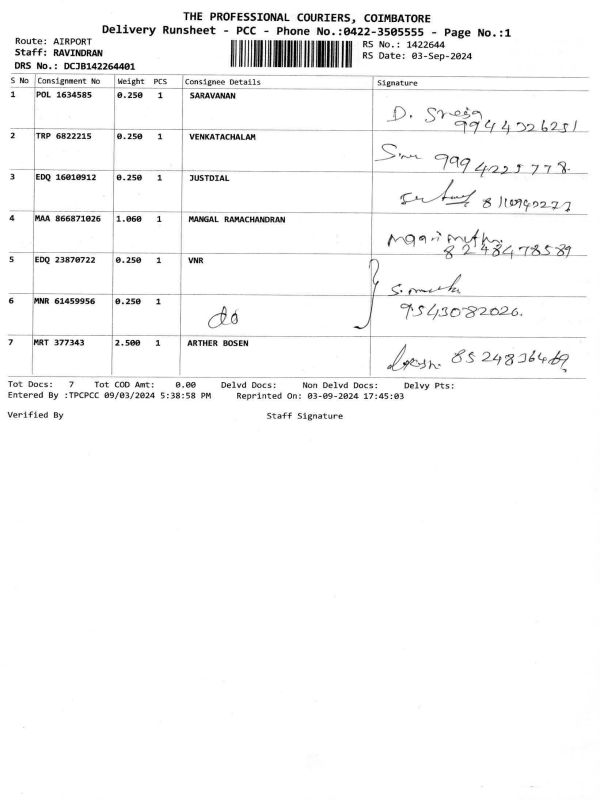 THE PROFESSIONAL COURIERS, COIMBATORE
Delivery Runsheet - PCC - Phone No.:0422-3505555 - Page No.:1
Route: AIRPORT
Staff: RAVINDRAN
DRS No.: DCJB142264401
RS No.: 1422644
RS Date: 03-Sep-2024
S No Consignment No Weight PCS Consignee Details Signature
1 POL 1634585 0.250 1 SARAVANAN
D.
2 TRP 6822215 0.250 1 VENKATACHALAM
9994225778
3 EDQ 16010912 0.250 1 JUSTDIAL
4 MAA 866871026 1.060 1 MANGAL RAMACHANDRAN
8248478589
5 EDQ 23870722 0.250 1 VNR
6 MNR 61459956 0.250 1 do
9543082026.
7 MRT 377343 2.500 1 ARTHER BOSEN
Tot Docs: 7 Tot COD Amt: 0.00 Delvd Docs: Non Delvd Docs: Delvy Pts:
Entered By :TPCPCC 09/03/2024 5:38:58 PM Reprinted On: 03-09-2024 17:45:03
Verified By Staff Signature